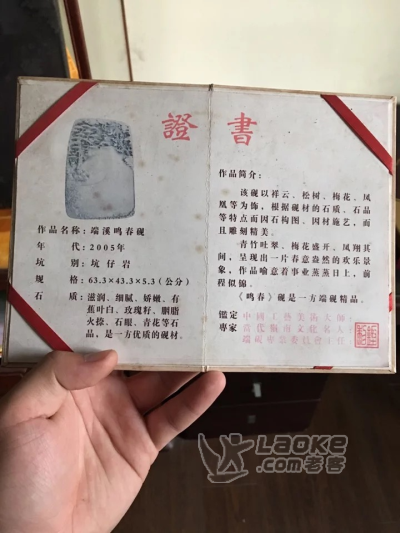 證書
作品名称：端溪鸣春砚
年代：2005年
坑别：坑仔岩
规格：63.3×43.3×5.3（公分）
石质：滋润、细腻、娇嫩、有
蕉叶白、玫瑰籽、胭脂
火捺、石眼、青花等石
品，是一方优质的砚材。
作品简介：
该砚以祥云、松树、梅花、凤
凰等为饰，根据砚材的石质、石品
等特点而因石构图、因材施艺，而
且雕刻精美。
青竹吐翠、梅花盛开、凤翔其
间，呈现出一片春意盎然的欢乐景
象，作品喻意着事业蒸蒸日上，前
程似锦。
《鸣春》砚是一方端砚精品。
鉴定
专家
中國工藝美術大師
當代嶺南文化名人
端硯專業委員會主任
LAOKE.com老客